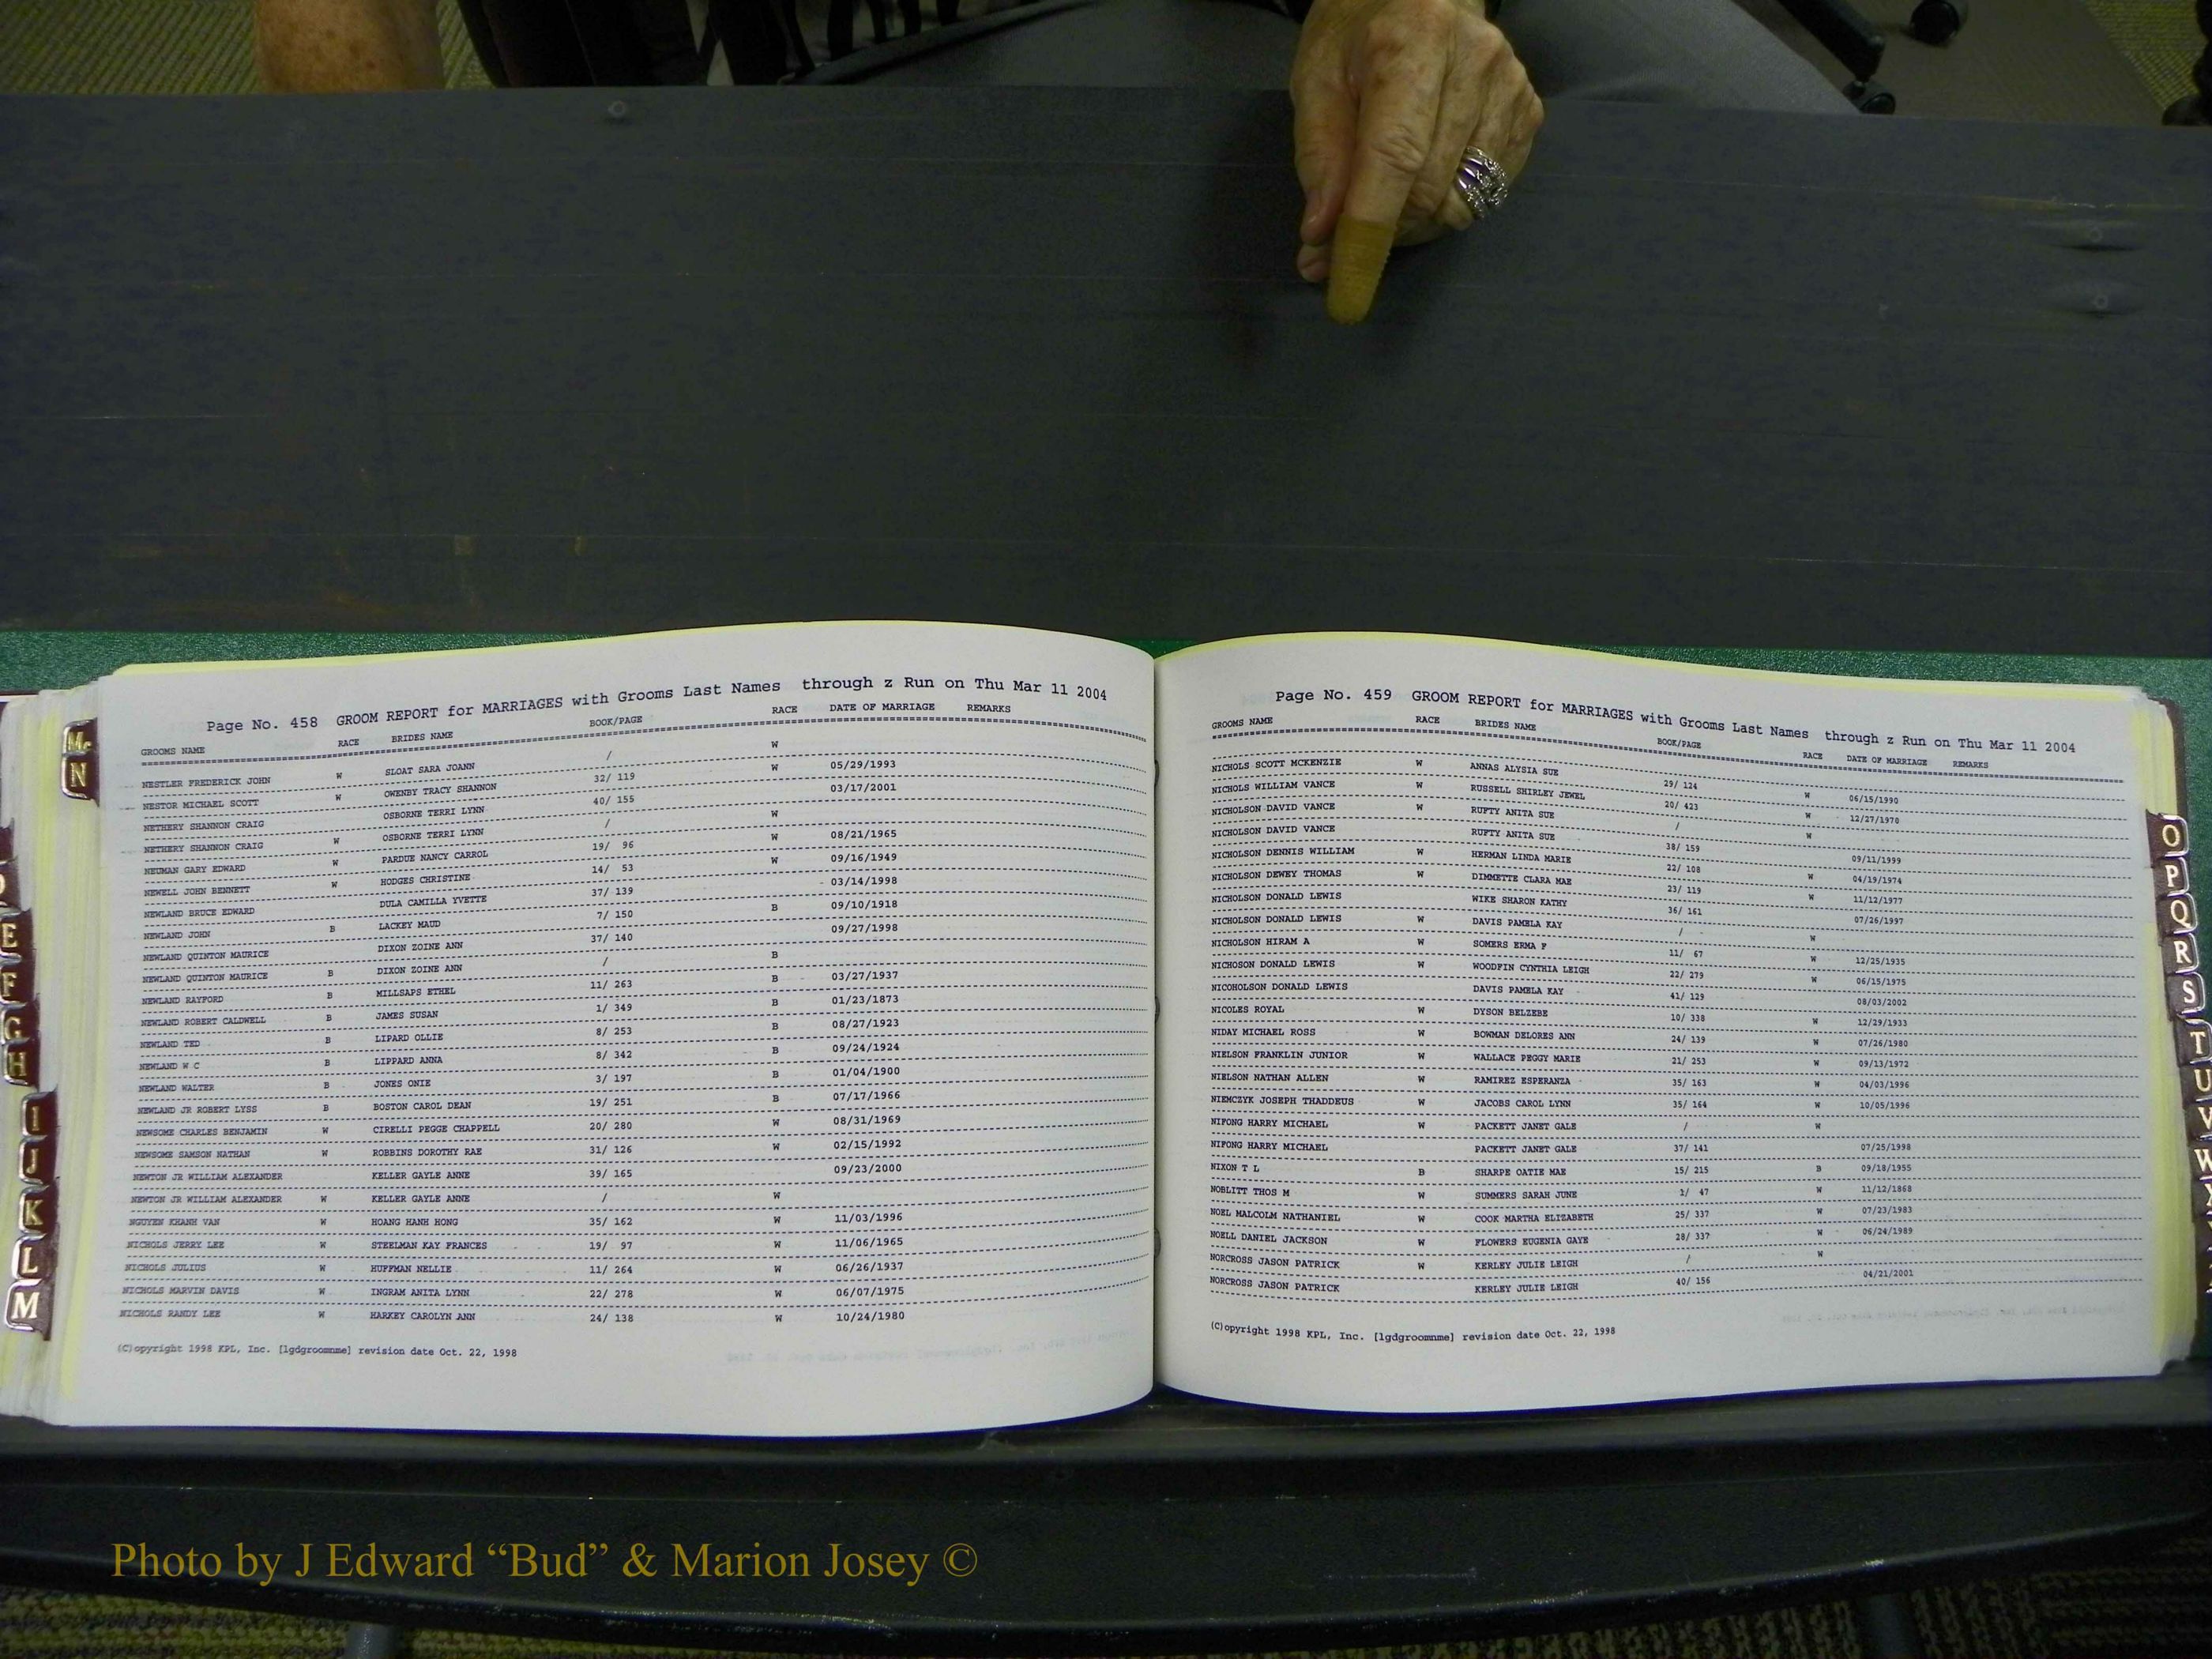 Mc
N
E
F
G
H
I
J
K
L
M
Page No. 458 GROOM REPORT for MARRIAGES with Grooms Last Names through z Run on Thu Mar 11 2004
GROOMS NAME RACE BRIDES NAME BOOK/PAGE RACE DATE OF MARRIAGE REMARKS
NESTLER FREDERICK JOHN W SLOAT SARA JOANN / W
NESTOR MICHAEL SCOTT W OWENBY TRACY SHANNON 32/ 119 W 05/29/1993
NETHERY SHANNON CRAIG OSBORNE TERRI LYNN 40/ 155 03/17/2001
NETHERY SHANNON CRAIG W OSBORNE TERRI LYNN / W
NEUMAN GARY EDWARD W PARDUE NANCY CARROL 19/ 96 W 08/21/1965
NEWELL JOHN BENNETT W HODGES CHRISTINE 14/ 53 W 09/16/1949
NEWLAND BRUCE EDWARD DULA CAMILLA YVETTE 37/ 139 03/14/1998
NEWLAND JOHN B LACKEY MAUD 7/ 150 B 09/10/1918
NEWLAND QUINTON MAURICE DIXON ZOINE ANN 37/ 140 09/27/1998
NEWLAND QUINTON MAURICE B DIXON ZOINE ANN / B
NEWLAND RAYFORD B MILLSAPS ETHEL 11/ 263 B 03/27/1937
NEWLAND ROBERT CALDWELL B JAMES SUSAN 1/ 349 B 01/23/1873
NEWLAND TED B LIPARD OLLIE 8/ 253 B 08/27/1923
NEWLAND W C B LIPPARD ANNA 8/ 342 B 09/24/1924
NEWLAND WALTER B JONES ONIE 3/ 197 B 01/04/1900
NEWLAND JR ROBERT LYSS B BOSTON CAROL DEAN 19/ 251 B 07/17/1966
NEWSOME CHARLES BENJAMIN W CIRELLI PEGGE CHAPPELL 20/ 280 W 08/31/1969
NEWSOME SAMSON NATHAN W ROBBINS DOROTHY RAE 31/ 126 W 02/15/1992
NEWTON JR WILLIAM ALEXANDER KELLER GAYLE ANNE 39/ 165 09/23/2000
NEWTON JR WILLIAM ALEXANDER W KELLER GAYLE ANNE / W
NGUYEN KHANH VAN W HOANG HANH HONG 35/ 162 W 11/03/1996
NICHOLS JERRY LEE W STEELMAN KAY FRANCES 19/ 97 W 11/06/1965
NICHOLS JULIUS W HUFFMAN NELLIE 11/ 264 W 06/26/1937
NICHOLS MARVIN DAVIS W INGRAM ANITA LYNN 22/ 278 W 06/07/1975
NICHOLS RANDY LEE W HARKEY CAROLYN ANN 24/ 138 W 10/24/1980
(C)opyright 1998 KPL, Inc. [lgdgroomnme] revision date Oct. 22, 1998
Page No. 459 GROOM REPORT for MARRIAGES with Grooms Last Names through z Run on Thu Mar 11 2004
GROOMS NAME RACE BRIDES NAME BOOK/PAGE RACE DATE OF MARRIAGE REMARKS
NICHOLS SCOTT MCKENZIE W ANNAS ALYSIA SUE 29/ 124 W 06/15/1990
NICHOLS WILLIAM VANCE W RUSSELL SHIRLEY JEWEL 20/ 423 W 12/27/1970
NICHOLSON DAVID VANCE W RUFTY ANITA SUE / W
NICHOLSON DAVID VANCE RUFTY ANITA SUE 38/ 159 09/11/1999
NICHOLSON DENNIS WILLIAM W HERMAN LINDA MARIE 22/ 108 W 04/19/1974
NICHOLSON DEWEY THOMAS W DIMMETTE CLARA MAE 23/ 119 W 11/12/1977
NICHOLSON DONALD LEWIS WIKE SHARON KATHY 36/ 161 07/26/1997
NICHOLSON DONALD LEWIS W DAVIS PAMELA KAY / W
NICHOLSON HIRAM A W SOMERS ERMA F 11/ 67 W 12/25/1935
NICHOSON DONALD LEWIS W WOODFIN CYNTHIA LEIGH 22/ 279 W 06/15/1975
NICOHOLSON DONALD LEWIS DAVIS PAMELA KAY 41/ 129 08/03/2002
NICOLES ROYAL W DYSON BELZEBE 10/ 338 W 12/29/1933
NIDAY MICHAEL ROSS W BOWMAN DELORES ANN 24/ 139 W 07/26/1980
NIELSON FRANKLIN JUNIOR W WALLACE PEGGY MARIE 21/ 253 W 09/13/1972
NIELSON NATHAN ALLEN W RAMIREZ ESPERANZA 35/ 163 W 04/03/1996
NIEMCZYK JOSEPH THADDEUS W JACOBS CAROL LYNN 35/ 164 W 10/05/1996
NIFONG HARRY MICHAEL W PACKETT JANET GALE / W
NIFONG HARRY MICHAEL PACKETT JANET GALE 37/ 141 07/25/1998
NIXON T L B SHARPE OATIE MAE 15/ 215 B 09/18/1955
NOBLITT THOS M W SUMMERS SARAH JUNE 1/ 47 W 11/12/1868
NOEL MALCOLM NATHANIEL W COOK MARTHA ELIZABETH 25/ 337 W 07/23/1983
NOELL DANIEL JACKSON W FLOWERS EUGENIA GAYE 28/ 337 W 06/24/1989
NORCROSS JASON PATRICK W KERLEY JULIE LEIGH / W
NORCROSS JASON PATRICK KERLEY JULIE LEIGH 40/ 156 04/21/2001
(C)opyright 1998 KPL, Inc. [lgdgroomnme] revision date Oct. 22, 1998
O
P
Q
R
S
T
U
V
W
Photo by J Edward “Bud” & Marion Josey ©